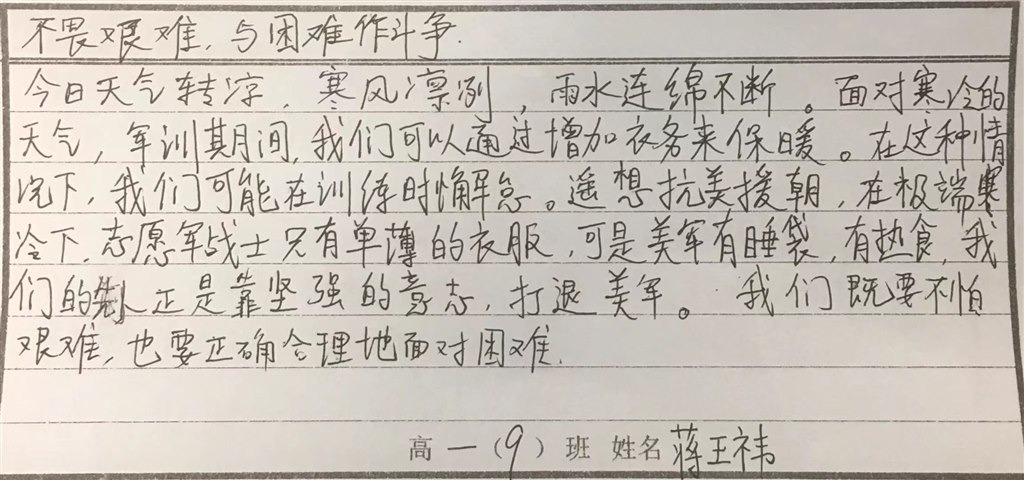 不畏艰难，与困难作斗争.
今日天气转凉，寒风凛冽，雨水连绵不断。面对寒冷的
天气，军训期间，我们可以通过增加衣务来保暖。在这种情
况下，我们可能在训练时懈怠。遥想抗美援朝，在极端寒
冷下，志愿军战士只有单薄的衣服，可是美军有睡袋，有热食，我
们的先人正是靠坚强的意志，打退美军。我们既要不怕
艰难，也要正确合理地面对困难.
高一（9）班 姓名 蒋王祎